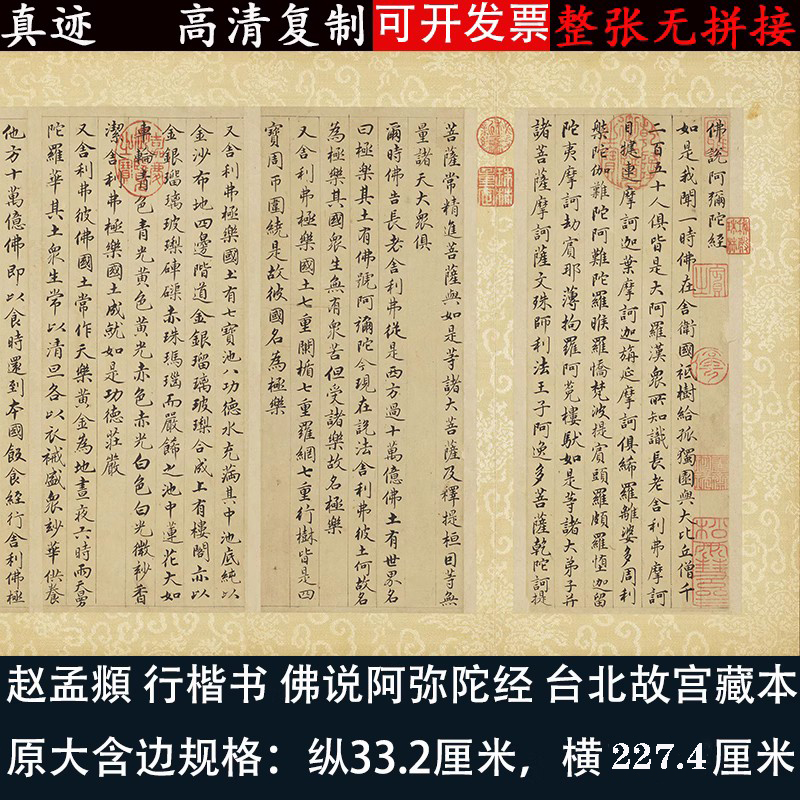 真迹 高清复制 可开发票 整张无拼接
佛說阿彌陀經
如是我聞一時佛在舍衛國祇樹給孤獨園與大比丘僧千
二百五十人俱皆是大阿羅漢衆所知識長老舍利弗摩訶
目揵連摩訶迦葉摩訶迦旃延摩訶俱絺羅離婆多周利
槃陀伽難陀阿難陀羅睺羅憍梵波提賓頭羅頗羅堕迦留
陀夷摩訶劫賓那薄拘羅阿㝹樓馱如是等諸大弟子并
諸菩薩摩訶薩文殊師利法王子阿逸多菩薩乾陀訶提
菩薩常精進菩薩與如是等諸大菩薩及釋提桓因等無
量諸天大衆俱
爾時佛告長老舍利弗從是西方過十萬億佛土有世界名
曰極樂其土有佛號阿彌陀今現在說法舍利弗彼土何故名
為極樂其國衆生無有衆苦但受諸樂故名極樂
又舍利弗極樂國土七重闌楯七重羅網七重行樹皆是四
寶周帀圍繞是故彼國名為極樂
又舍利弗極樂國土有七寶池八功德水充滿其中池底純以
金沙布地四邊階道金銀瑠璃玻瓈合成上有樓閣亦以
金銀瑠璃玻瓈硨磲赤珠瑪瑙而嚴飾之池中蓮花大如
車輪青色青光黃色黃光赤色赤光白色白光微玅香
潔舍利弗極樂國土成就如是功德莊嚴
又舍利弗彼佛國土常作天樂黃金為地晝夜六時雨天曼
陀羅華其土衆生常以清旦各以衣祴盛衆玅華供養
他方十萬億佛即以食時還到本國飯食經行舍利弗極
赵孟頫 行楷书 佛说阿弥陀经 台北故宫藏本
原大含边规格：纵33.2厘米，横227.4厘米